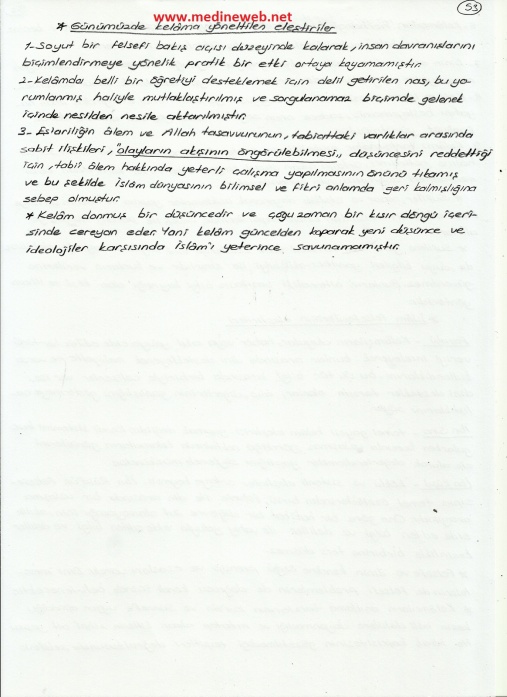 53
www.medineweb.net
* Günümüzde kelâma yöneltilen eleştiriler
1- Soyut bir felsefi bakış açısı düzeyinde kalarak, insan davranışlarını
biçimlendirmeye yönelik pratik bir etki ortaya koyamamıştır.
2- Kelâmda belli bir öğretiyi desteklemek için delil getirilen nas, bu yo-
rumlanmış haliyle mutlaklaştırılmış ve sorgulanamaz biçimde gelenek
içinde nesilden nesile aktarılmıştır.
3- Eş'ariliğin âlem ve Allah tasavvurunun, tabiattaki varlıklar arasında
sabit ilişkileri, "olayların akışının öngörülebilmesi" düşüncesini reddettiği
için, tabii âlem hakkında yeterli çalışma yapılmasının önünü tıkamış
ve bu şekilde İslâm dünyasının bilimsel ve fikri anlamda geri kalmışlığına
sebep olmuştur.
* Kelâm donmuş bir düşüncedir ve çoğu zaman bir kısır döngü içeri-
sinde cereyan eder. Yani kelâm güncelden koparak yeni düşünce ve
ideolojiler karşısında İslâm'ı yeterince savunamamıştır.